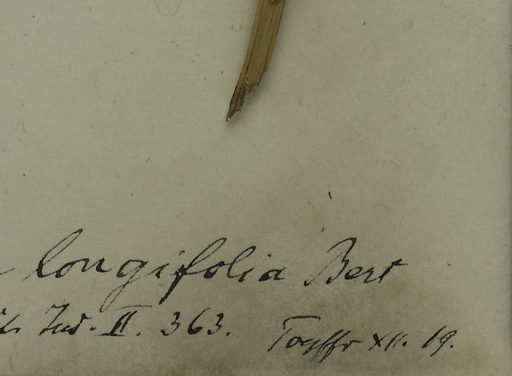 longifolia Bert
Ind. II. 363. XII. 19.